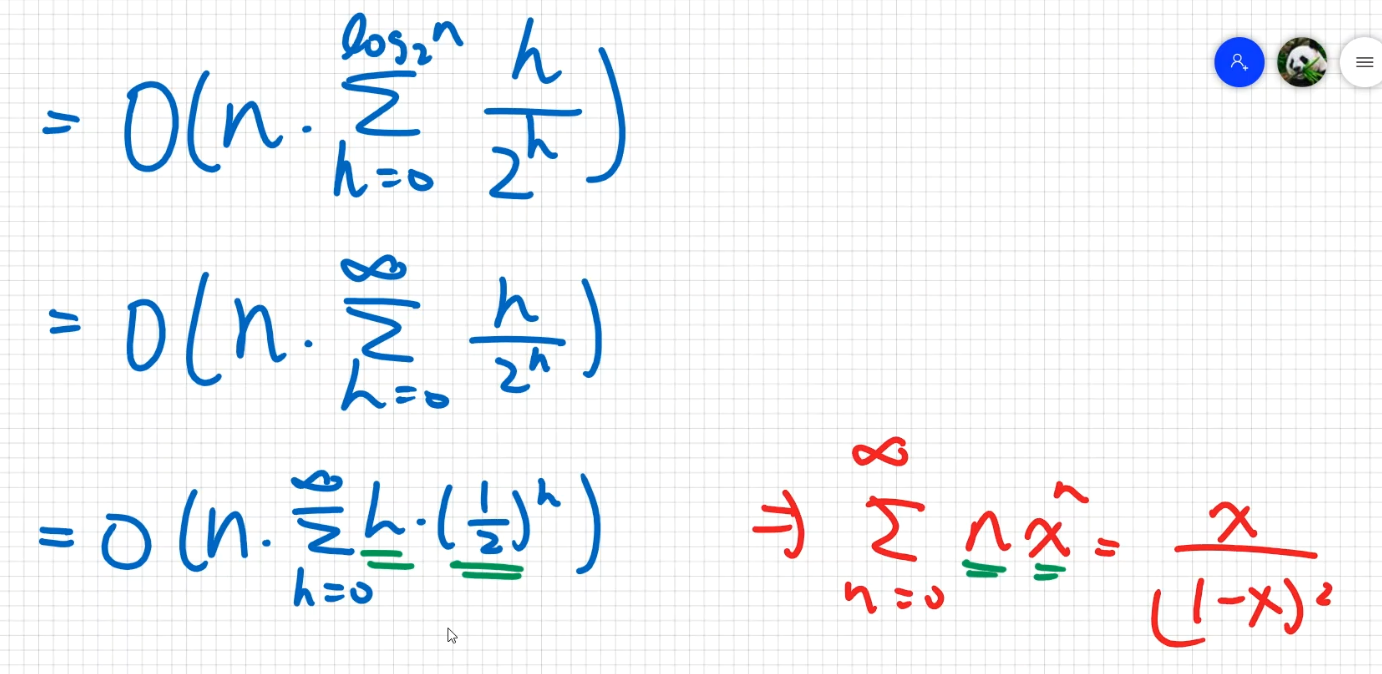 = O(n · ∑_{h=0}^{log₂n} h/2^h)
= O(n · ∑_{h=0}^{∞} h/2^h)
= O(n · ∑_{h=0}^{∞} h · (1/2)^h)
⇒ ∑_{n=0}^{∞} n x^n = x/(1-x)²